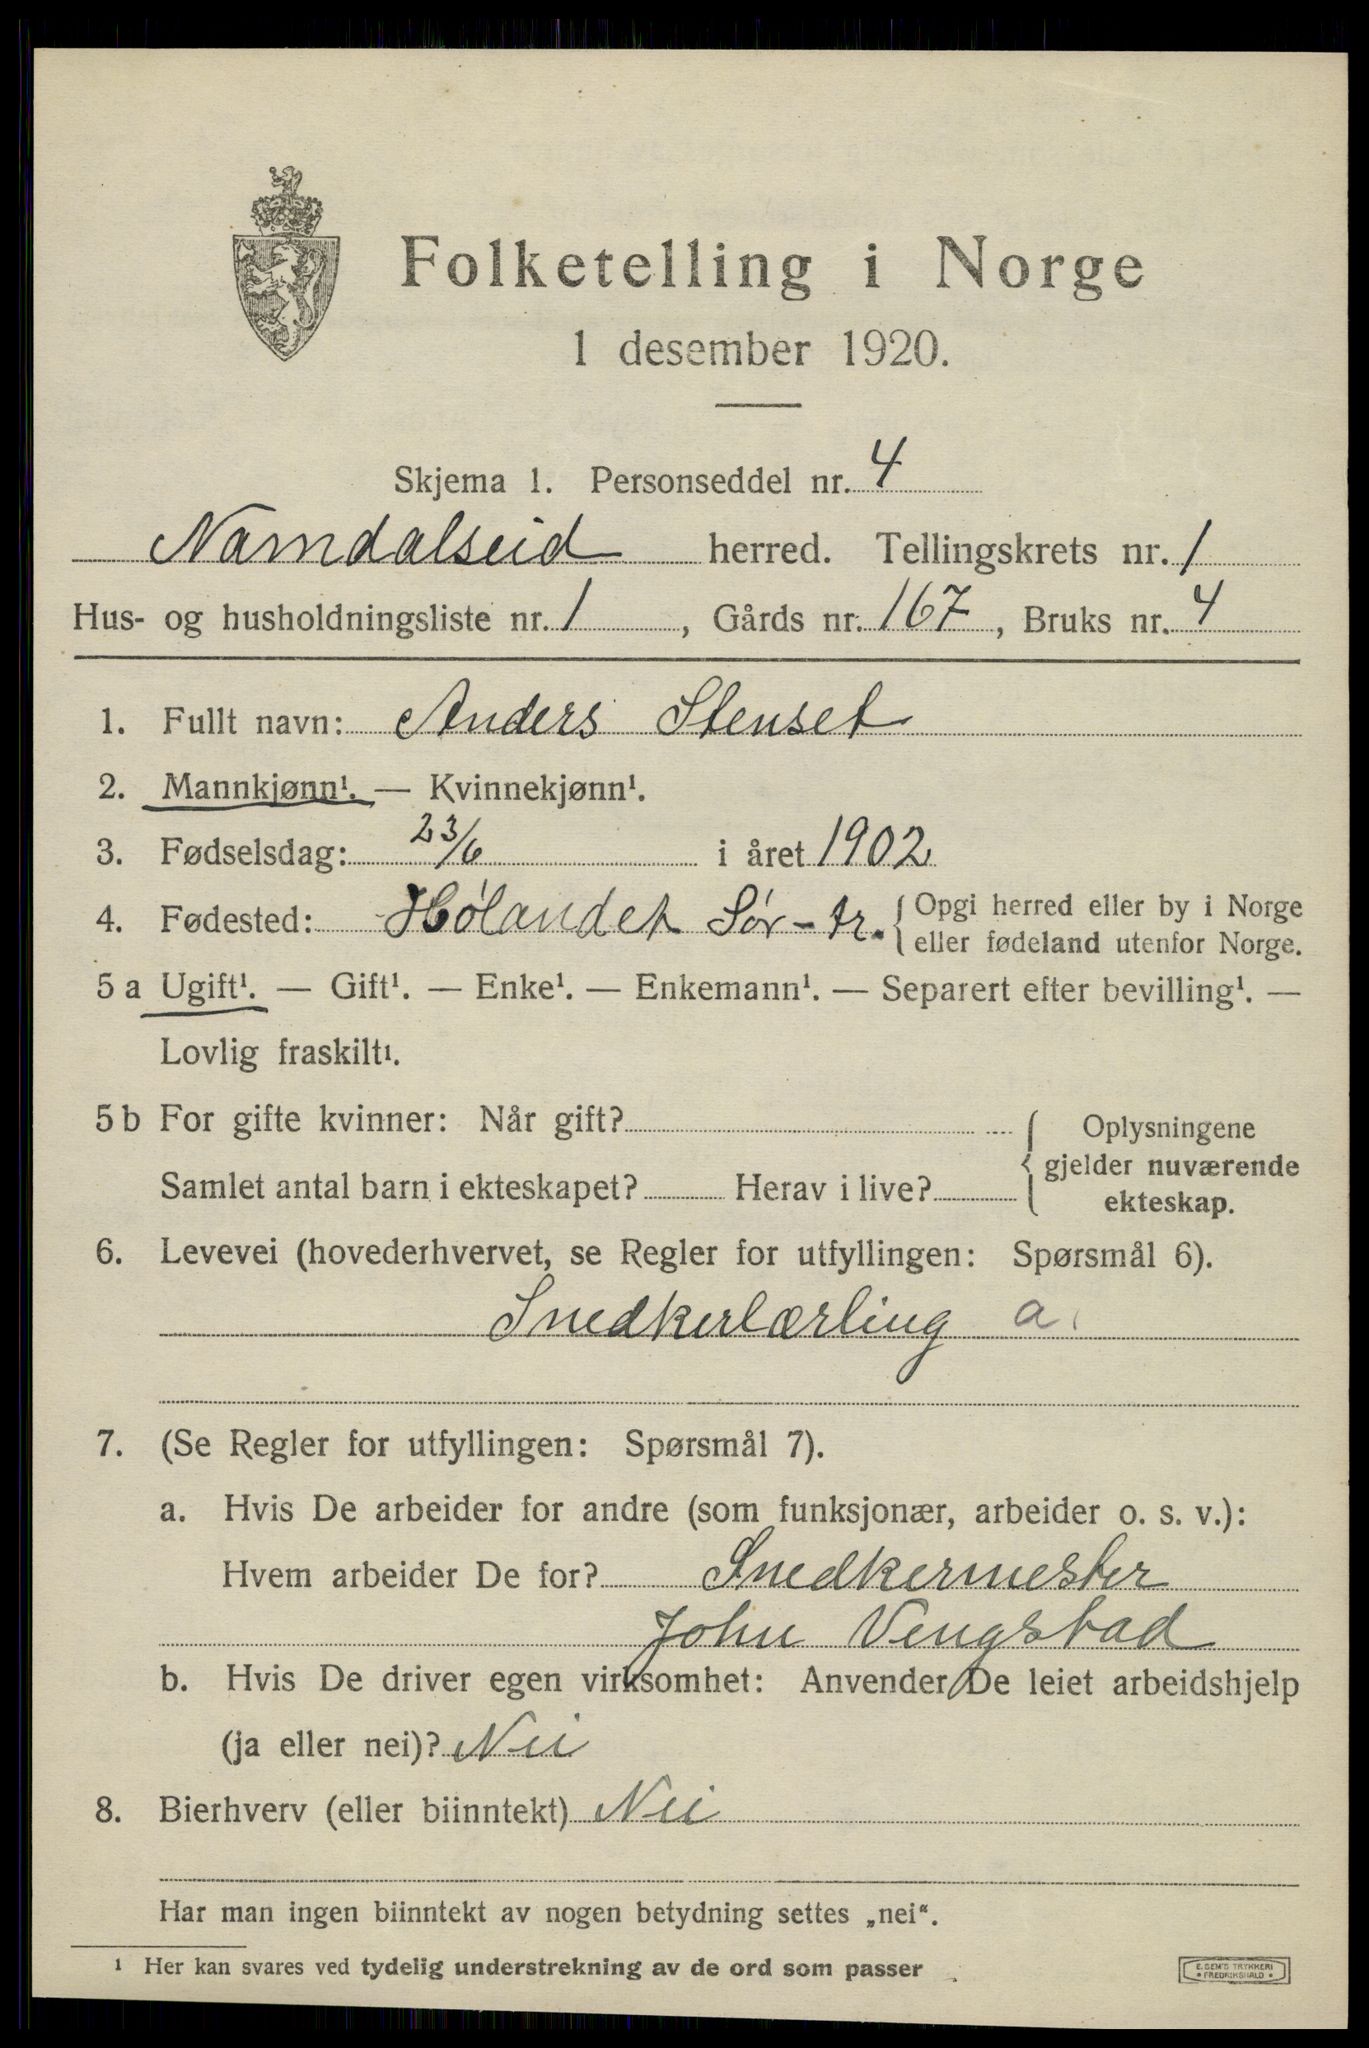 Folketelling i Norge
1 desember 1920.
Skjema 1. Personseddel nr. 4
Namdalseid herred. Tellingskrets nr. 1
Hus- og husholdningsliste nr. 1, Gårds nr. 167, Bruks nr. 4
1. Fullt navn: Anders Stenset
2. Mannkjønn¹. — Kvinnekjønn¹.
3. Fødselsdag: 23/6 i året 1902
4. Fødested: Hølandet Sør-tr. { Opgi herred eller by i Norge
eller fødeland utenfor Norge.
5 a Ugift¹. — Gift¹. — Enke¹. — Enkemann¹. — Separert efter bevilling¹. —
Lovlig fraskilt¹.
5 b For gifte kvinner: Når gift?
Samlet antal barn i ekteskapet? Herav i live?
{ Oplysningene
gjelder nuværende
ekteskap.
6. Levevei (hovederhvervet, se Regler for utfyllingen: Spørsmål 6).
Snedkerlærling a.
7. (Se Regler for utfyllingen: Spørsmål 7).
a. Hvis De arbeider for andre (som funksjonær, arbeider o. s. v.):
Hvem arbeider De for? Snedkermester
John Vengstad
b. Hvis De driver egen virksomhet: Anvender De leiet arbeidshjelp
(ja eller nei)? Nei
8. Bierhverv (eller biinntekt) Nei
Har man ingen biinntekt av nogen betydning settes „nei“.
¹ Her kan svares ved tydelig understrekning av de ord som passer
E. SEM'S TRYKKERI
FREDRIKSHALD